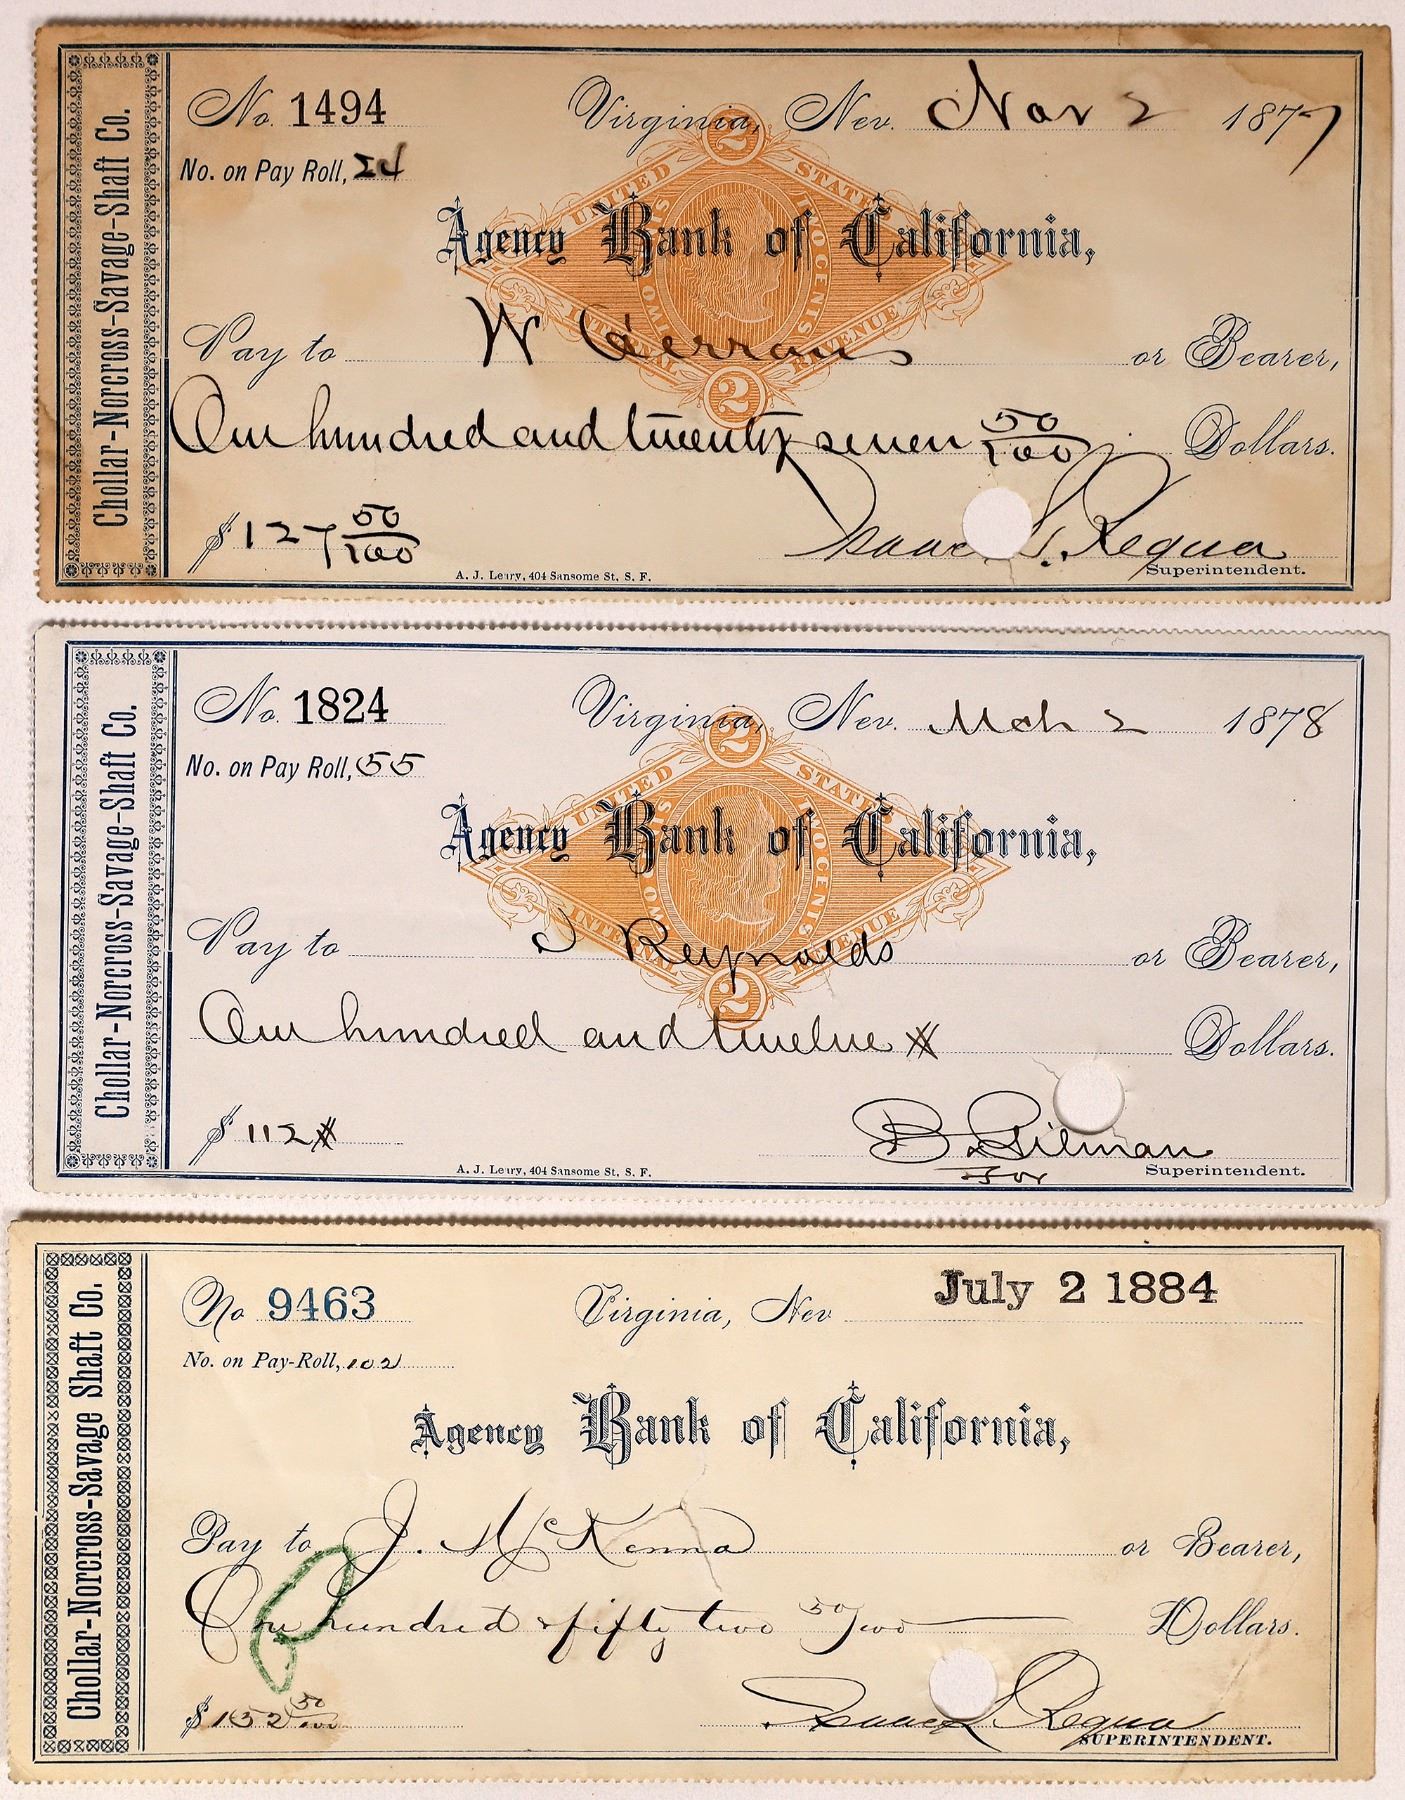 Chollar-Norcross-Savage-Shaft Co.
No. 1494 Virginia, Nev. Nov 2 1877
No. on Pay Roll, 24
2
UNITED STATES
TWO CENTS
INTERNAL REVENUE
2
Agency Bank of California,
Pay to W or Bearer,
One hundred and twenty seven 50/100 Dollars.
$ 127 50/100 Isaac L. Requa
Superintendent.
A. J. Leary, 404 Sansome St, S. F.
Chollar-Norcross-Savage-Shaft Co.
No. 1824 Virginia, Nev. Mch 2 1878
No. on Pay Roll, 55
2
UNITED STATES
TWO CENTS
INTERNAL REVENUE
2
Agency Bank of California,
Pay to J Reynolds or Bearer,
One hundred and twelve Dollars.
$ 112 B. Gilman
for Superintendent.
A. J. Leary, 404 Sansome St, S. F.
Chollar-Norcross-Savage Shaft Co.
No 9463 Virginia, Nev July 2 1884
No. on Pay-Roll, 102
Agency Bank of California,
Pay to J. McKenna or Bearer,
One hundred & fifty two 50/100 Dollars.
$ 152 50/100 Isaac L. Requa
SUPERINTENDENT.